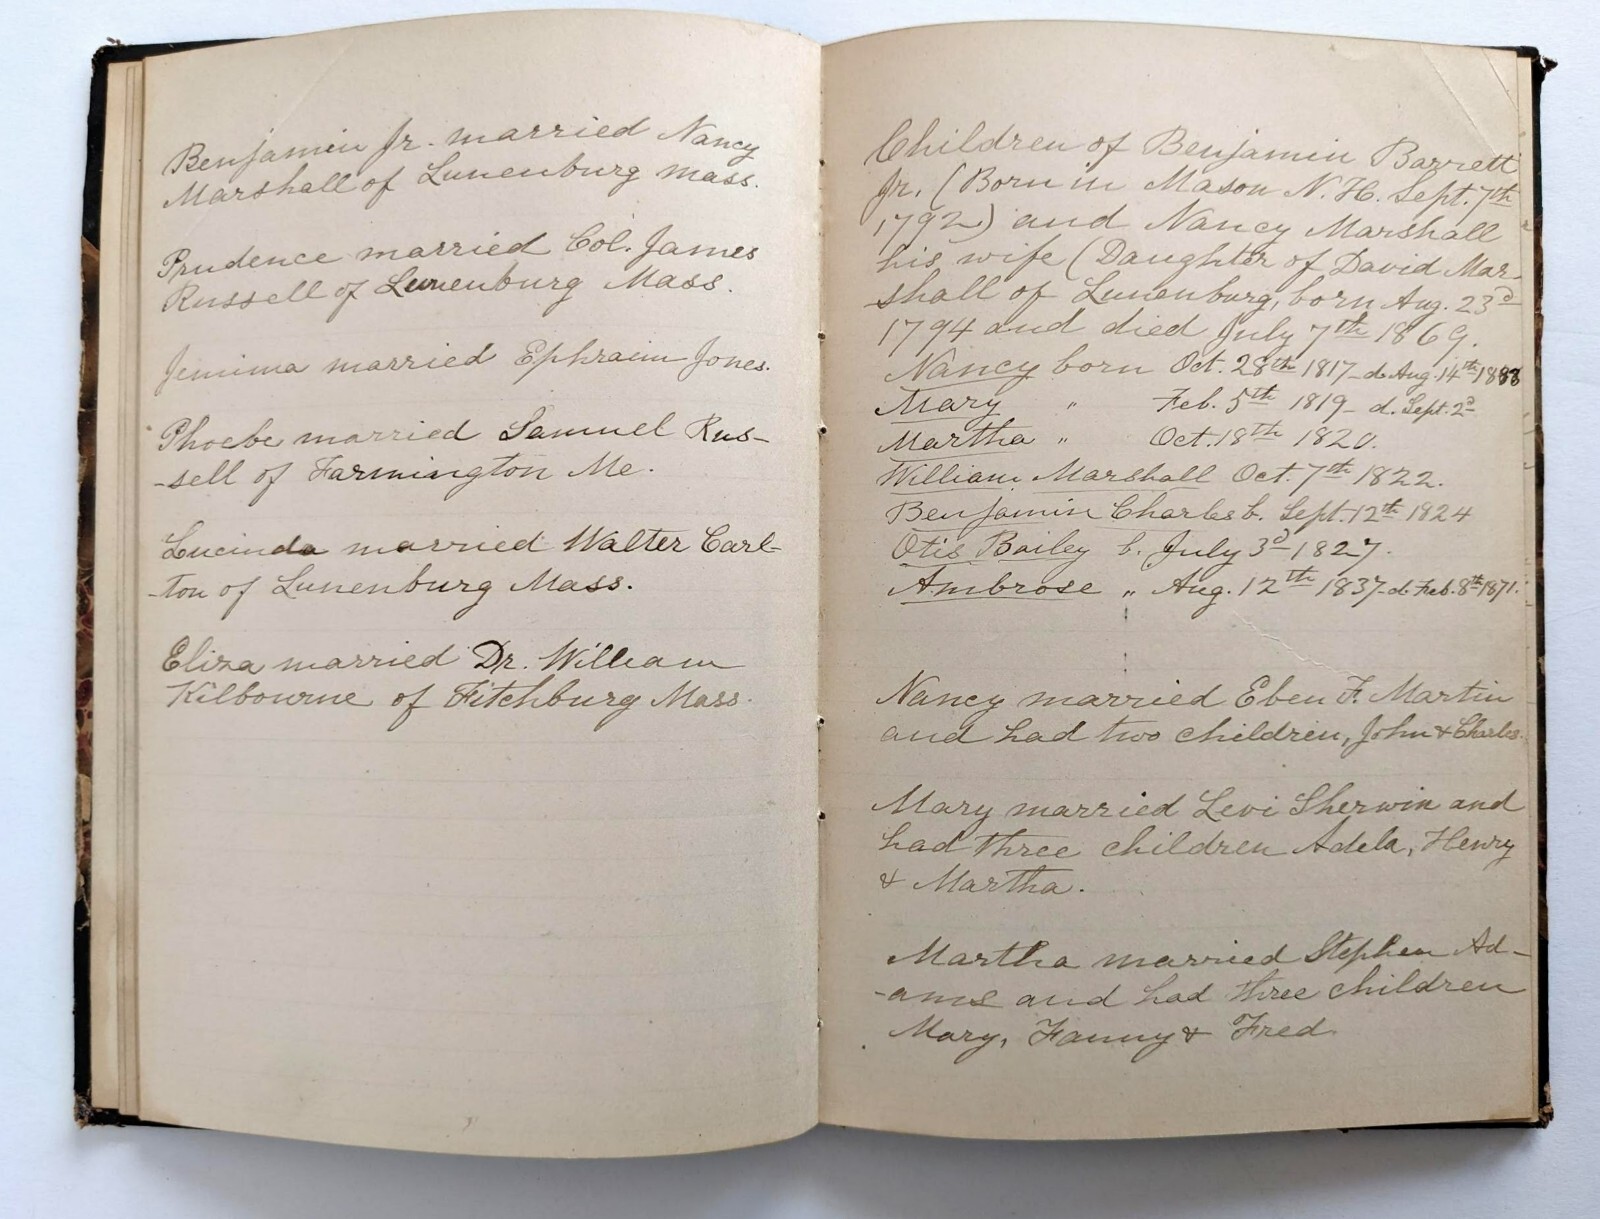 Benjamin Jr. married Nancy
Marshall of Lunenburg Mass.
Prudence married Col. James
Russell of Lunenburg Mass.
Jemima married Ephraim Jones.
Phoebe married Samuel Rus-
-sell of Farmington Me.
Lucinda married Walter Carl-
-ton of Lunenburg Mass.
Eliza married Dr. William
Kilbourne of Fitchburg Mass.
Children of Benjamin Barrett
Jr. (Born in Mason N.H. Sept. 7th
1792) and Nancy Marshall
his wife (Daughter of David Mar-
shall of Lunenburg, born Aug. 23d
1794 and died July 7th 1869.
Nancy born Oct. 28th 1817 - d. Aug. 14th 1888
Mary " Feb. 5th 1819 - d. Sept. 2d
Martha " Oct. 18th 1820.
William Marshall Oct. 7th 1822.
Benjamin Charles b. Sept. 12th 1824
Otis Bailey b. July 3d 1827.
Ambrose " Aug. 12th 1837 - d. Feb. 8th 1871.
Nancy married Eben F. Martin
and had two children, John & Charles.
Mary married Levi Sherwin and
had three children Adela, Henry
& Martha.
Martha married Stephen Ad-
-ams and had three children
Mary, Fanny & Fred